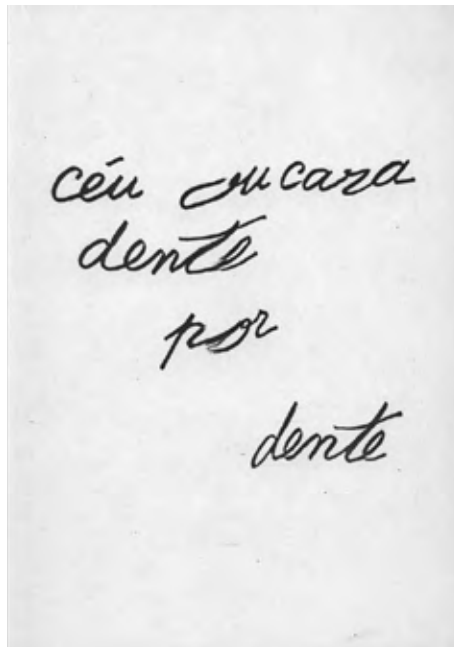 céu ou cara
dente
por
dente